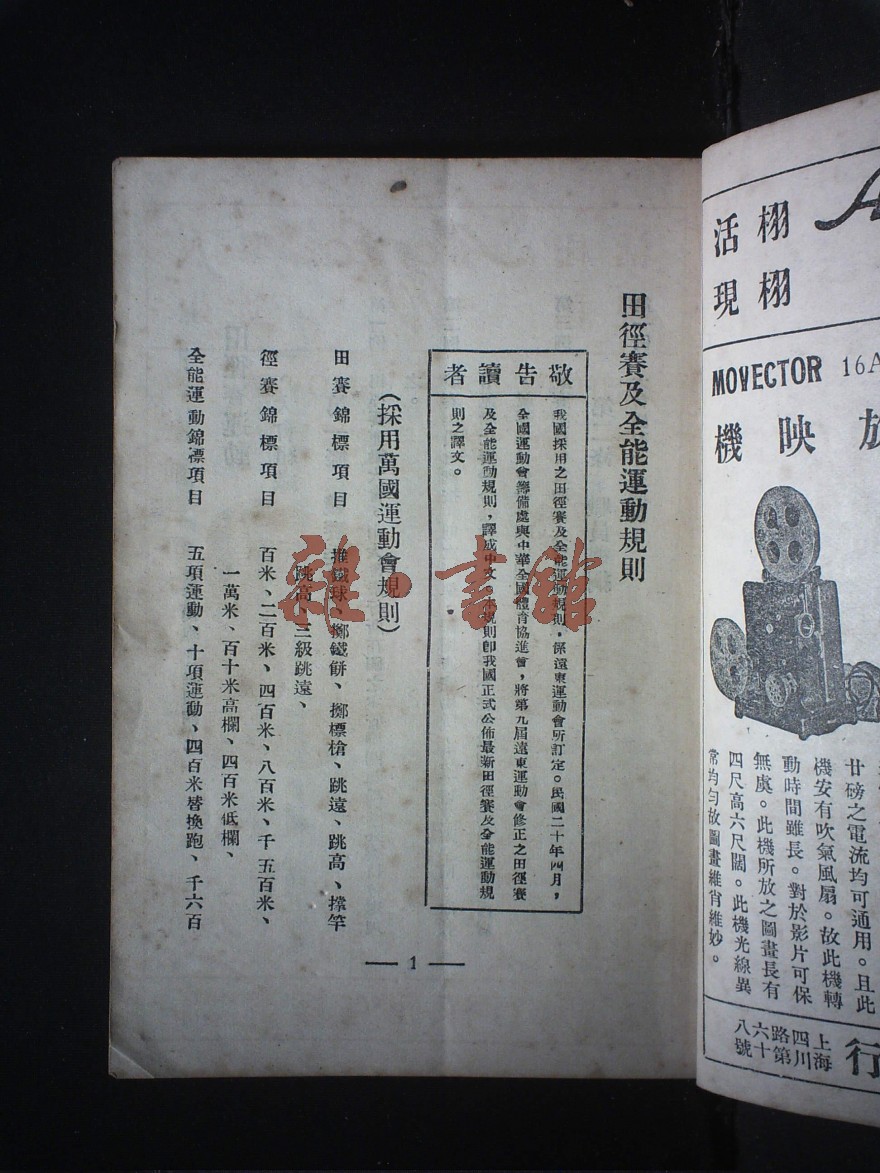 田徑賽及全能運動規則
敬告讀者
我國採用之田徑賽及全能運動規則，係遠東運動會所訂定。民國二十年四月，
全國運動會籌備處與中華全國體育協進會，將第九屆遠東運動會修正之田徑賽
及全能運動規則，譯成中文，本規則卽我國正式公佈最新田徑賽及全能運動規
則之譯文。
(採用萬國運動會規則)
田賽錦標項目 推鐵球、擲鐵餅、擲標槍、跳遠、跳高、撐竿
跳高、三級跳遠、
徑賽錦標項目 百米、二百米、四百米、八百米、千五百米、
一萬米、百十米高欄、四百米低欄、
全能運動錦標項目 五項運動、十項運動、四百米替換跑、千六百
1
栩栩
活現
MOVECTOR 16A
放映機
廿磅之電流均可通用。且此
機安有吹氣風扇。故此機轉
動時間雖長。對於影片可保
無虞。此機所放之圖畫長有
四尺高六尺闊。此機光線異
常均勻故圖畫維肖維妙。
行
上海
四川
路第
六十
八號
雜·書館